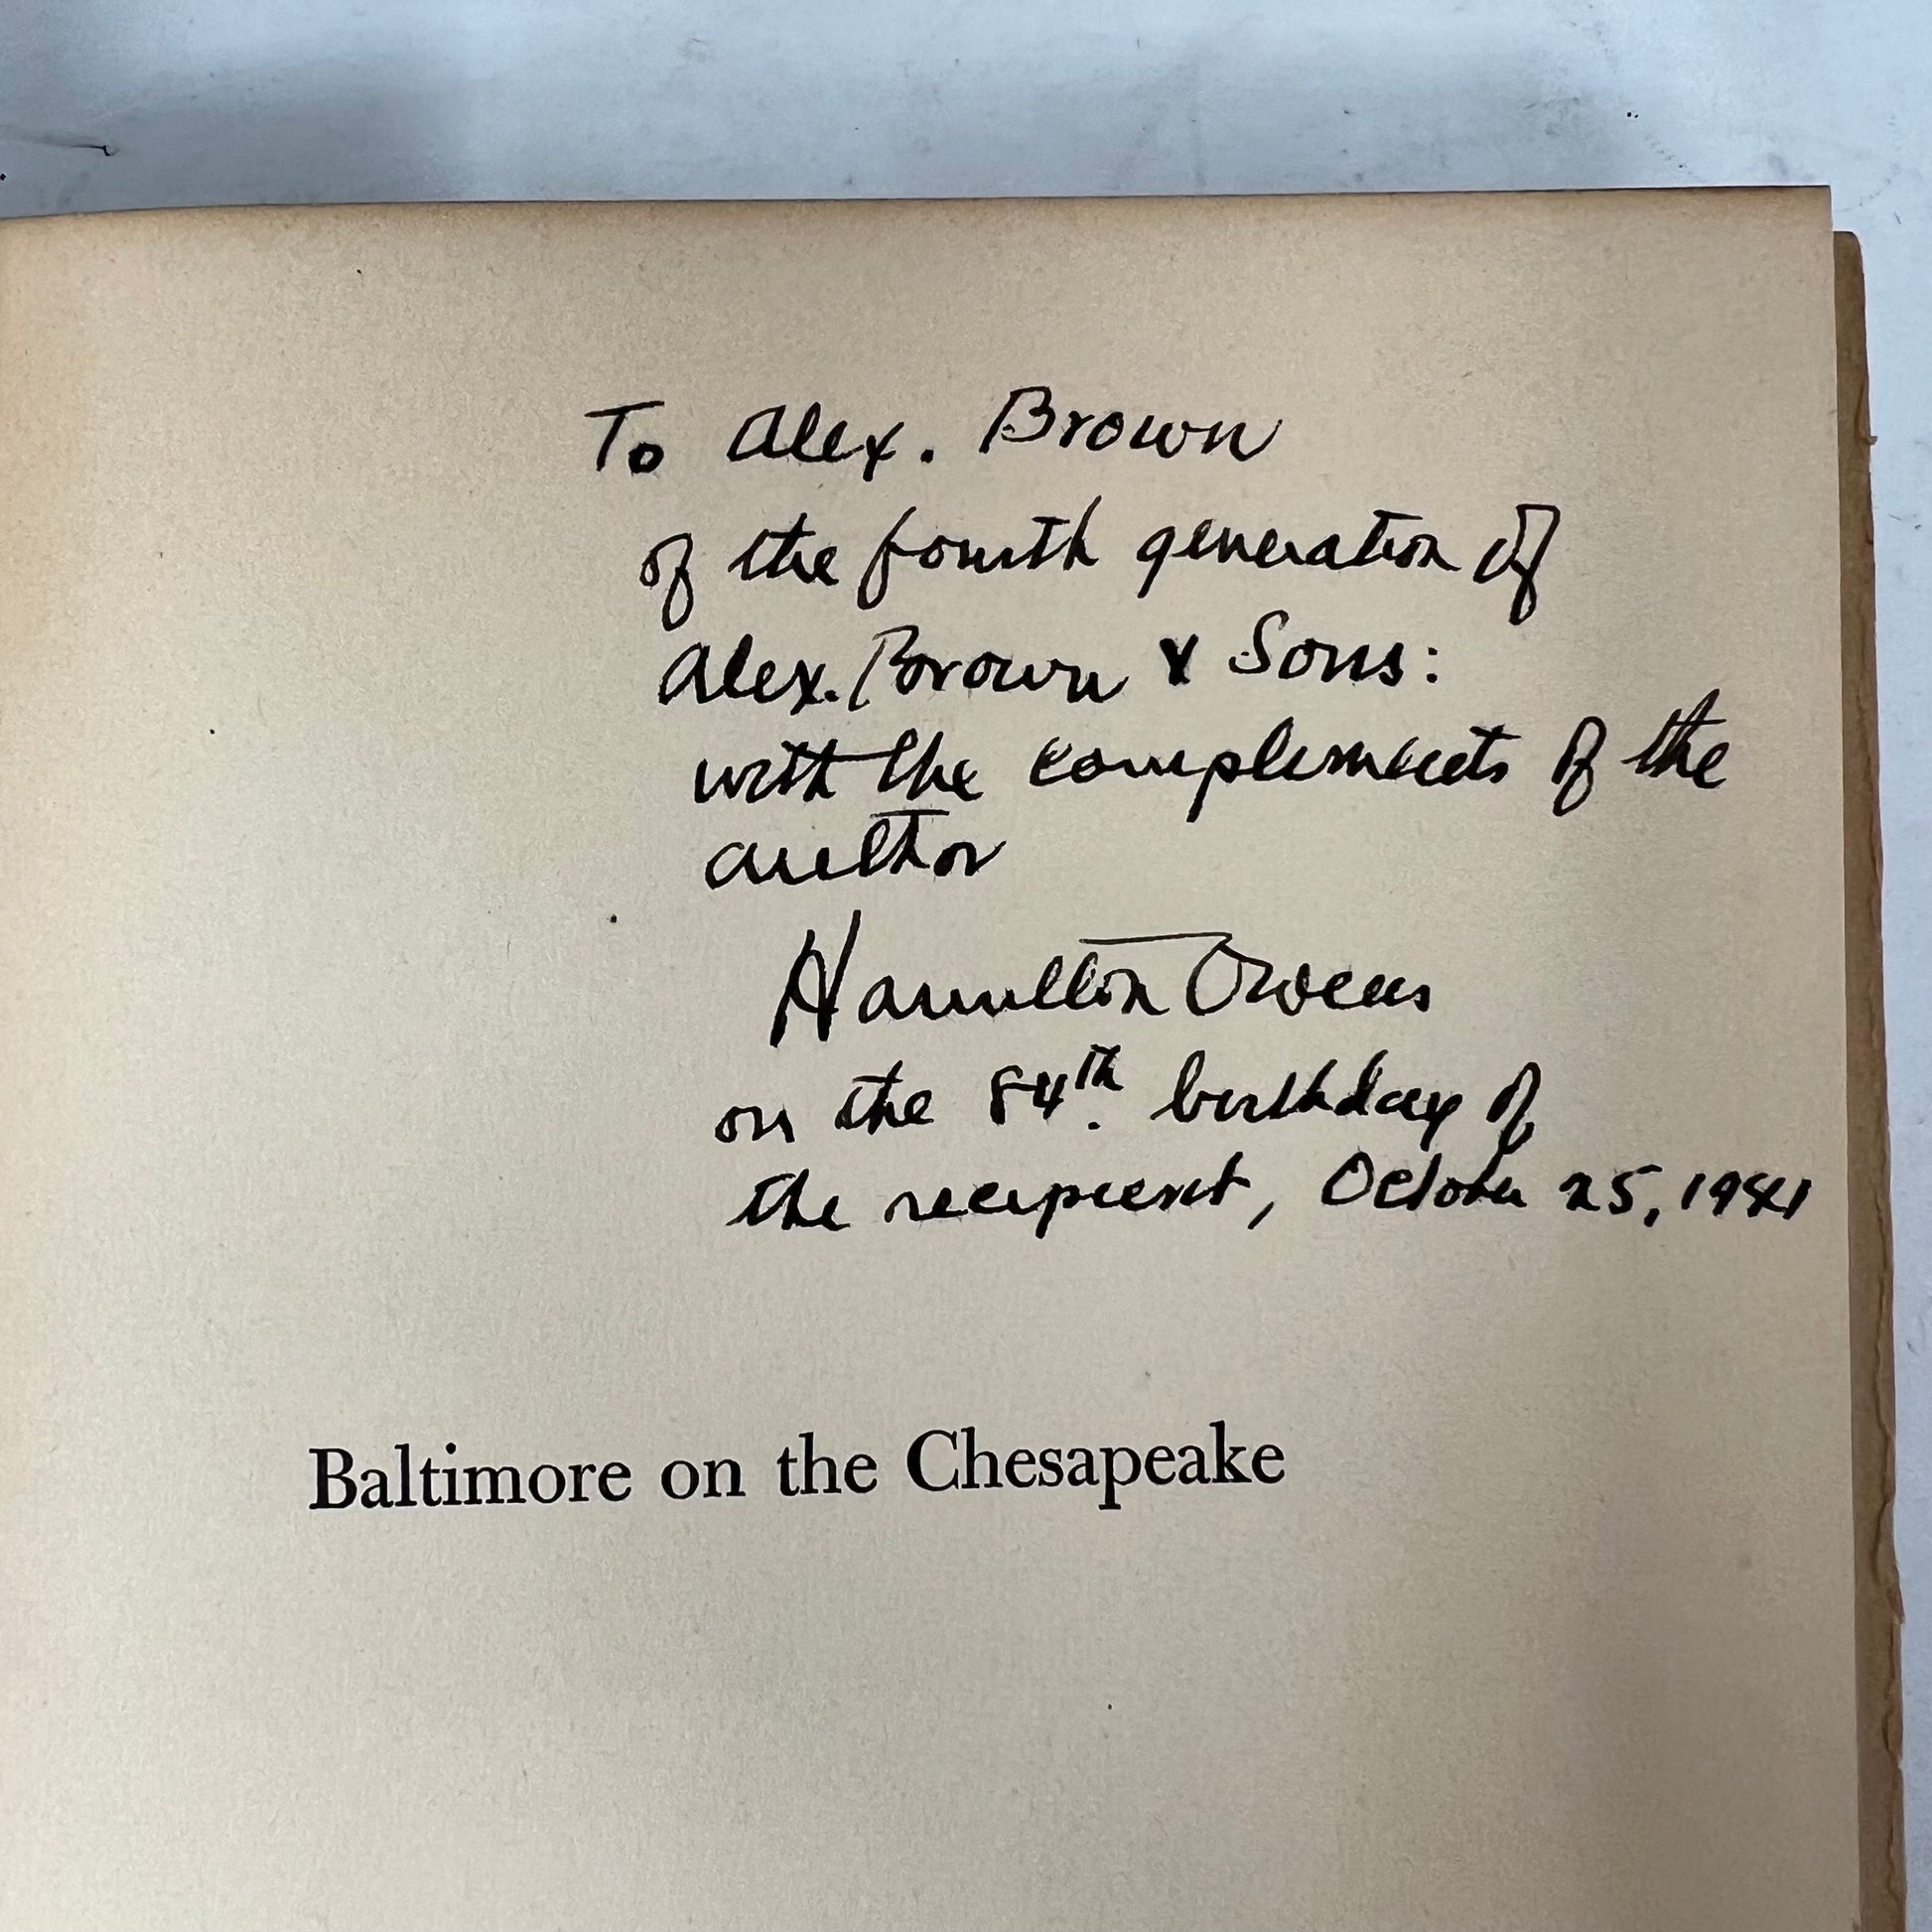 To Alex. Brown
of the fourth generation of
Alex. Brown & Sons:
with the compliments of the
author
Hamilton Owens
on the 84th birthday of
the recipient, October 25, 1941
Baltimore on the Chesapeake